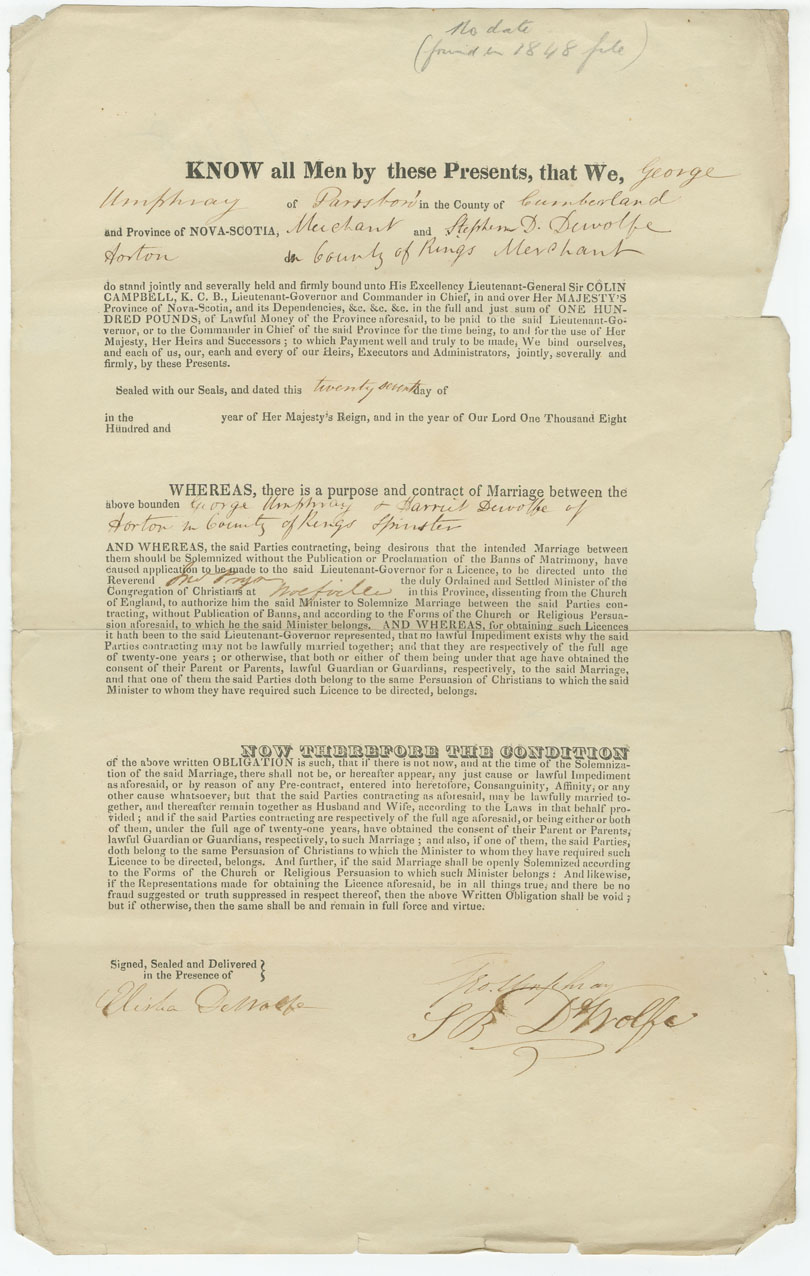 No date
(found in 1848 file)
KNOW all Men by these Presents, that We, George
Umphray of Parssboro' in the County of Cumberland
and Province of NOVA-SCOTIA, Merchant and Stephen D. Dewolfe
Horton in County of Kings Merchant
do stand jointly and severally held and firmly bound unto His Excellency Lieutenant-General Sir COLIN
CAMPBELL, K. C. B., Lieutenant-Governor and Commander in Chief, in and over Her MAJESTY'S
Province of Nova-Scotia, and its Dependencies, &c. &c. &c. in the full and just sum of ONE HUN-
DRED POUNDS, of Lawful Money of the Province aforesaid, to be paid to the said Lieutenant-Go-
vernor, or to the Commander in Chief of the said Province for the time being, to and for the use of Her
Majesty, Her Heirs and Successors ; to which Payment well and truly to be made, We bind ourselves,
and each of us, our, each and every of our Heirs, Executors and Administrators, jointly, severally and
firmly, by these Presents.
Sealed with our Seals, and dated this twenty seventh day of
in the year of Her Majesty's Reign, and in the year of Our Lord One Thousand Eight
Hundred and
WHEREAS, there is a purpose and contract of Marriage between the
above bounden George Umphray & Harriet Dewolfe of
Horton in County of Kings Spinster
AND WHEREAS, the said Parties contracting, being desirous that the intended Marriage between
them should be Solemnized without the Publication or Proclamation of the Banns of Matrimony, have
caused application to be made to the said Lieutenant-Governor for a Licence, to be directed unto the
Reverend the duly Ordained and Settled Minister of the
Congregation of Christians at Wolfville in this Province, dissenting from the Church
of England, to authorize him the said Minister to Solemnize Marriage between the said Parties con-
tracting, without Publication of Banns, and according to the Forms of the Church or Religious Persua-
sion aforesaid, to which he the said Minister belongs. AND WHEREAS, for obtaining such Licences
it hath been to the said Lieutenant-Governor represented, that no lawful Impediment exists why the said
Parties contracting may not be lawfully married together; and that they are respectively of the full age
of twenty-one years ; or otherwise, that both or either of them being under that age have obtained the
consent of their Parent or Parents, lawful Guardian or Guardians, respectively, to the said Marriage,
and that one of them the said Parties doth belong to the same Persuasion of Christians to which the said
Minister to whom they have required such Licence to be directed, belongs.
NOW THEREFORE THE CONDITION
of the above written OBLIGATION is such, that if there is not now, and at the time of the Solemniza-
tion of the said Marriage, there shall not be, or hereafter appear, any just cause or lawful Impediment
as aforesaid, or by reason of any Pre-contract, entered into heretofore, Consanguinity, Affinity, or any
other cause whatsoever, but that the said Parties contracting as aforesaid, may be lawfully married to-
gether, and thereafter remain together as Husband and Wife, according to the Laws in that behalf pro-
vided ; and if the said Parties contracting are respectively of the full age aforesaid, or being either or both
of them, under the full age of twenty-one years, have obtained the consent of their Parent or Parents,
lawful Guardian or Guardians, respectively, to such Marriage ; and also, if one of them, the said Parties,
doth belong to the same Persuasion of Christians to which the Minister to whom they have required such
Licence to be directed, belongs. And further, if the said Marriage shall be openly Solemnized according
to the Forms of the Church or Religious Persuasion to which such Minister belongs : And likewise,
if the Representations made for obtaining the Licence aforesaid, be in all things true, and there be no
fraud suggested or truth suppressed in respect thereof, then the above Written Obligation shall be void ;
but if otherwise, then the same shall be and remain in full force and virtue.
Signed, Sealed and Delivered }
in the Presence of
Elisha DeWolfe
Geo. Umphray
S B DeWolfe